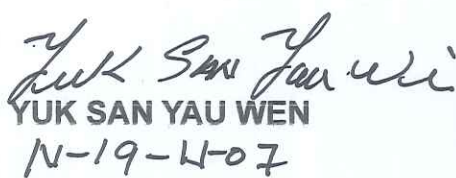 Yuk San Yau Wen
YUK SAN YAU WEN
N-19-W-07